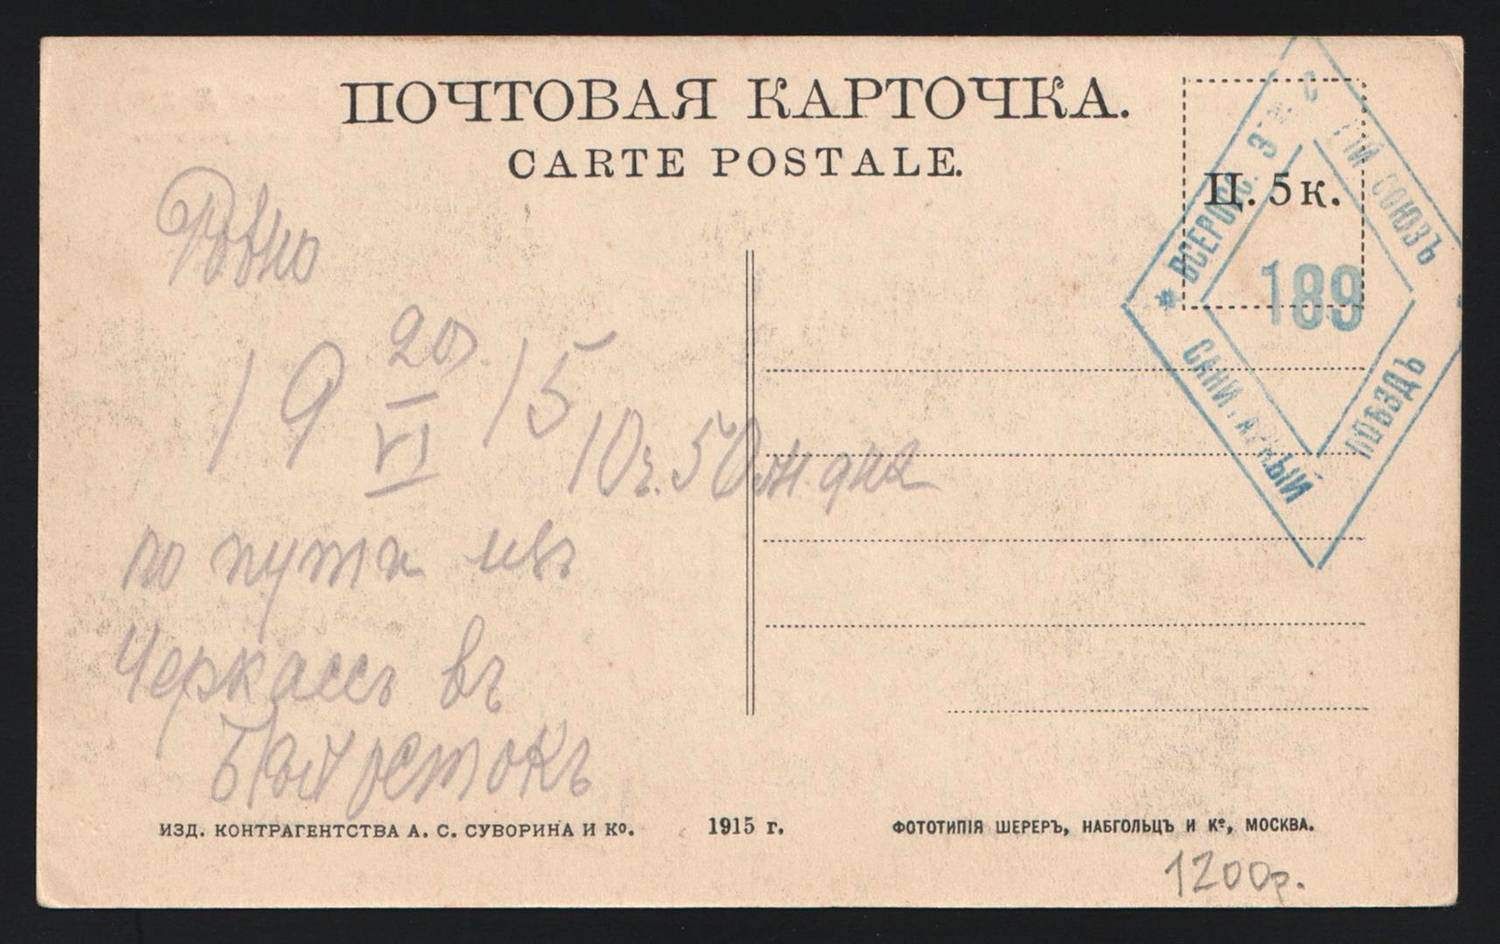 ПОЧТОВАЯ КАРТОЧКА.
CARTE POSTALE.
Ц. 5 к.
ВСЕРОСС. ЗЕМ. С
КІЙ СОЮЗЪ
189
САНИТАРНЫЙ
ПОѢЗДЪ
Ровно
19 20/VI 15
10 ч. 50 м. дня
по пути изъ
Черкассъ въ
Бѣлостокъ
ИЗД. КОНТРАГЕНТСТВА А. С. СУВОРИНА И Ко.
1915 г.
ФОТОТИПІЯ ШЕРЕРЪ, НАБГОЛЬЦЪ И Ко, МОСКВА.
1200р.